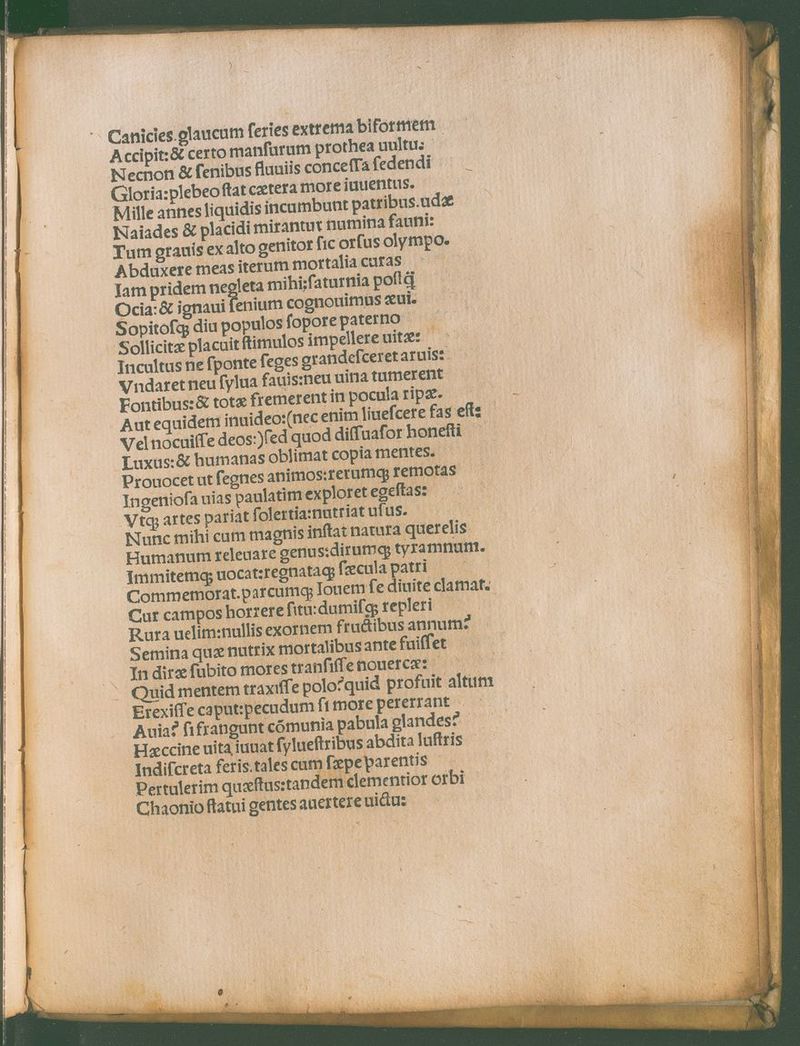 Canicies.glaucum ſeries extrema biformem
Accipit:& certo manſurum prothea uultu:
Necnon & ſenibus fluuiis conceſſa ſedendi
Gloria:plebeo ſtat cætera more iuuentus.
Mille amnes liquidis incumbunt patribus.udæ
Naiades & placidi mirantur numina fauni:
Tum grauis ex alto genitor ſic orſus olympo.
Abduxere meas iterum mortalia curas
Iam pridem negleta mihi;ſaturnia poſtq̃
Ocia:& ignaui ſenium cognouimus æui.
Sopitoſq; diu populos ſopore paterno
Sollicitæ placuit ſtimulos impellere uitæ:
Incultus ne ſponte ſeges grandeſceret aruis:
Vndaret neu ſylua fauis:neu uina tumerent
Fontibus:& totæ fremerent in pocula ripæ.
Aut equidem inuideo:(nec enim liueſcere fas eſt:
Vel nocuiſſe deos:)ſed quod diſſuaſor honeſti
Luxus:& humanas oblimat copia mentes.
Prouocet ut ſegnes animos:rerumq; remotas
Ingenioſa uias paulatim exploret egeſtas:
Vtq; artes pariat ſolertia:nutriat uſus.
Nunc mihi cum magnis inſtat natura querelis
Humanum releuare genus:dirumq; tyramnum.
Immitemq; uocat:regnataq; ſæcula patri
Commemorat.parcumq; Iouem ſe diuite clamat.
Cur campos horrere ſitu:dumiſq; repleri
Rura uelim:nullis exornem fructibus annum?
Semina quæ nutrix mortalibus ante fuiſſet
In diræ ſubito mores tranſiſſe nouercæ:
Quid mentem traxiſſe polo?quid profuit altum
Erexiſſe caput:pecudum ſi more pererrant
Auia? ſi frangunt cōmunia pabula glandes?
Hæccine uita iuuat ſylueſtribus abdita luſtris
Indiſcreta feris.tales cum ſæpe parentis
Pertulerim quæſtus:tandem clementior orbi
Chaonio ſtatui gentes auertere uictu: